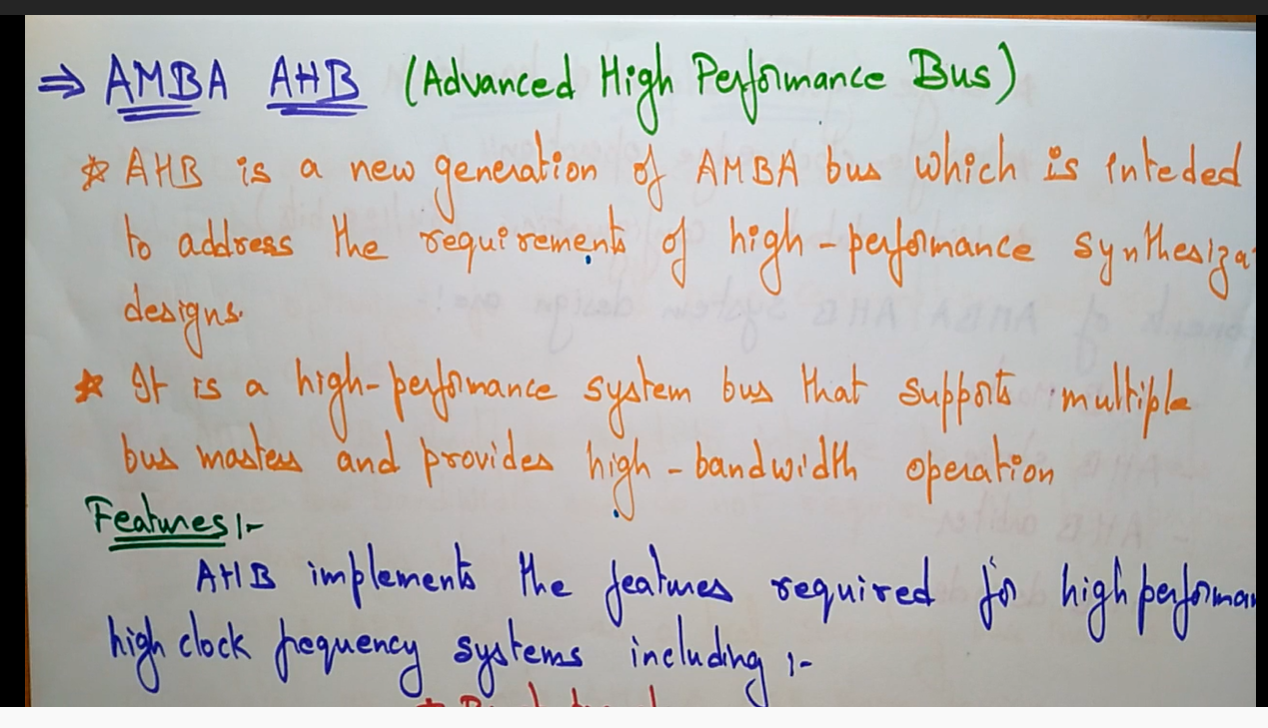 ⇒ AMBA AHB (Advanced High Performance Bus)
☆ AHB is a new generation of AMBA bus which is inteded
to address the requirements of high-performance synthesiza
designs.
☆ It is a high-performance system bus that supports multiple
bus masters and provides high-bandwidth operation
Features:-
AHB implements the features required for high performan
high clock frequency systems including :-